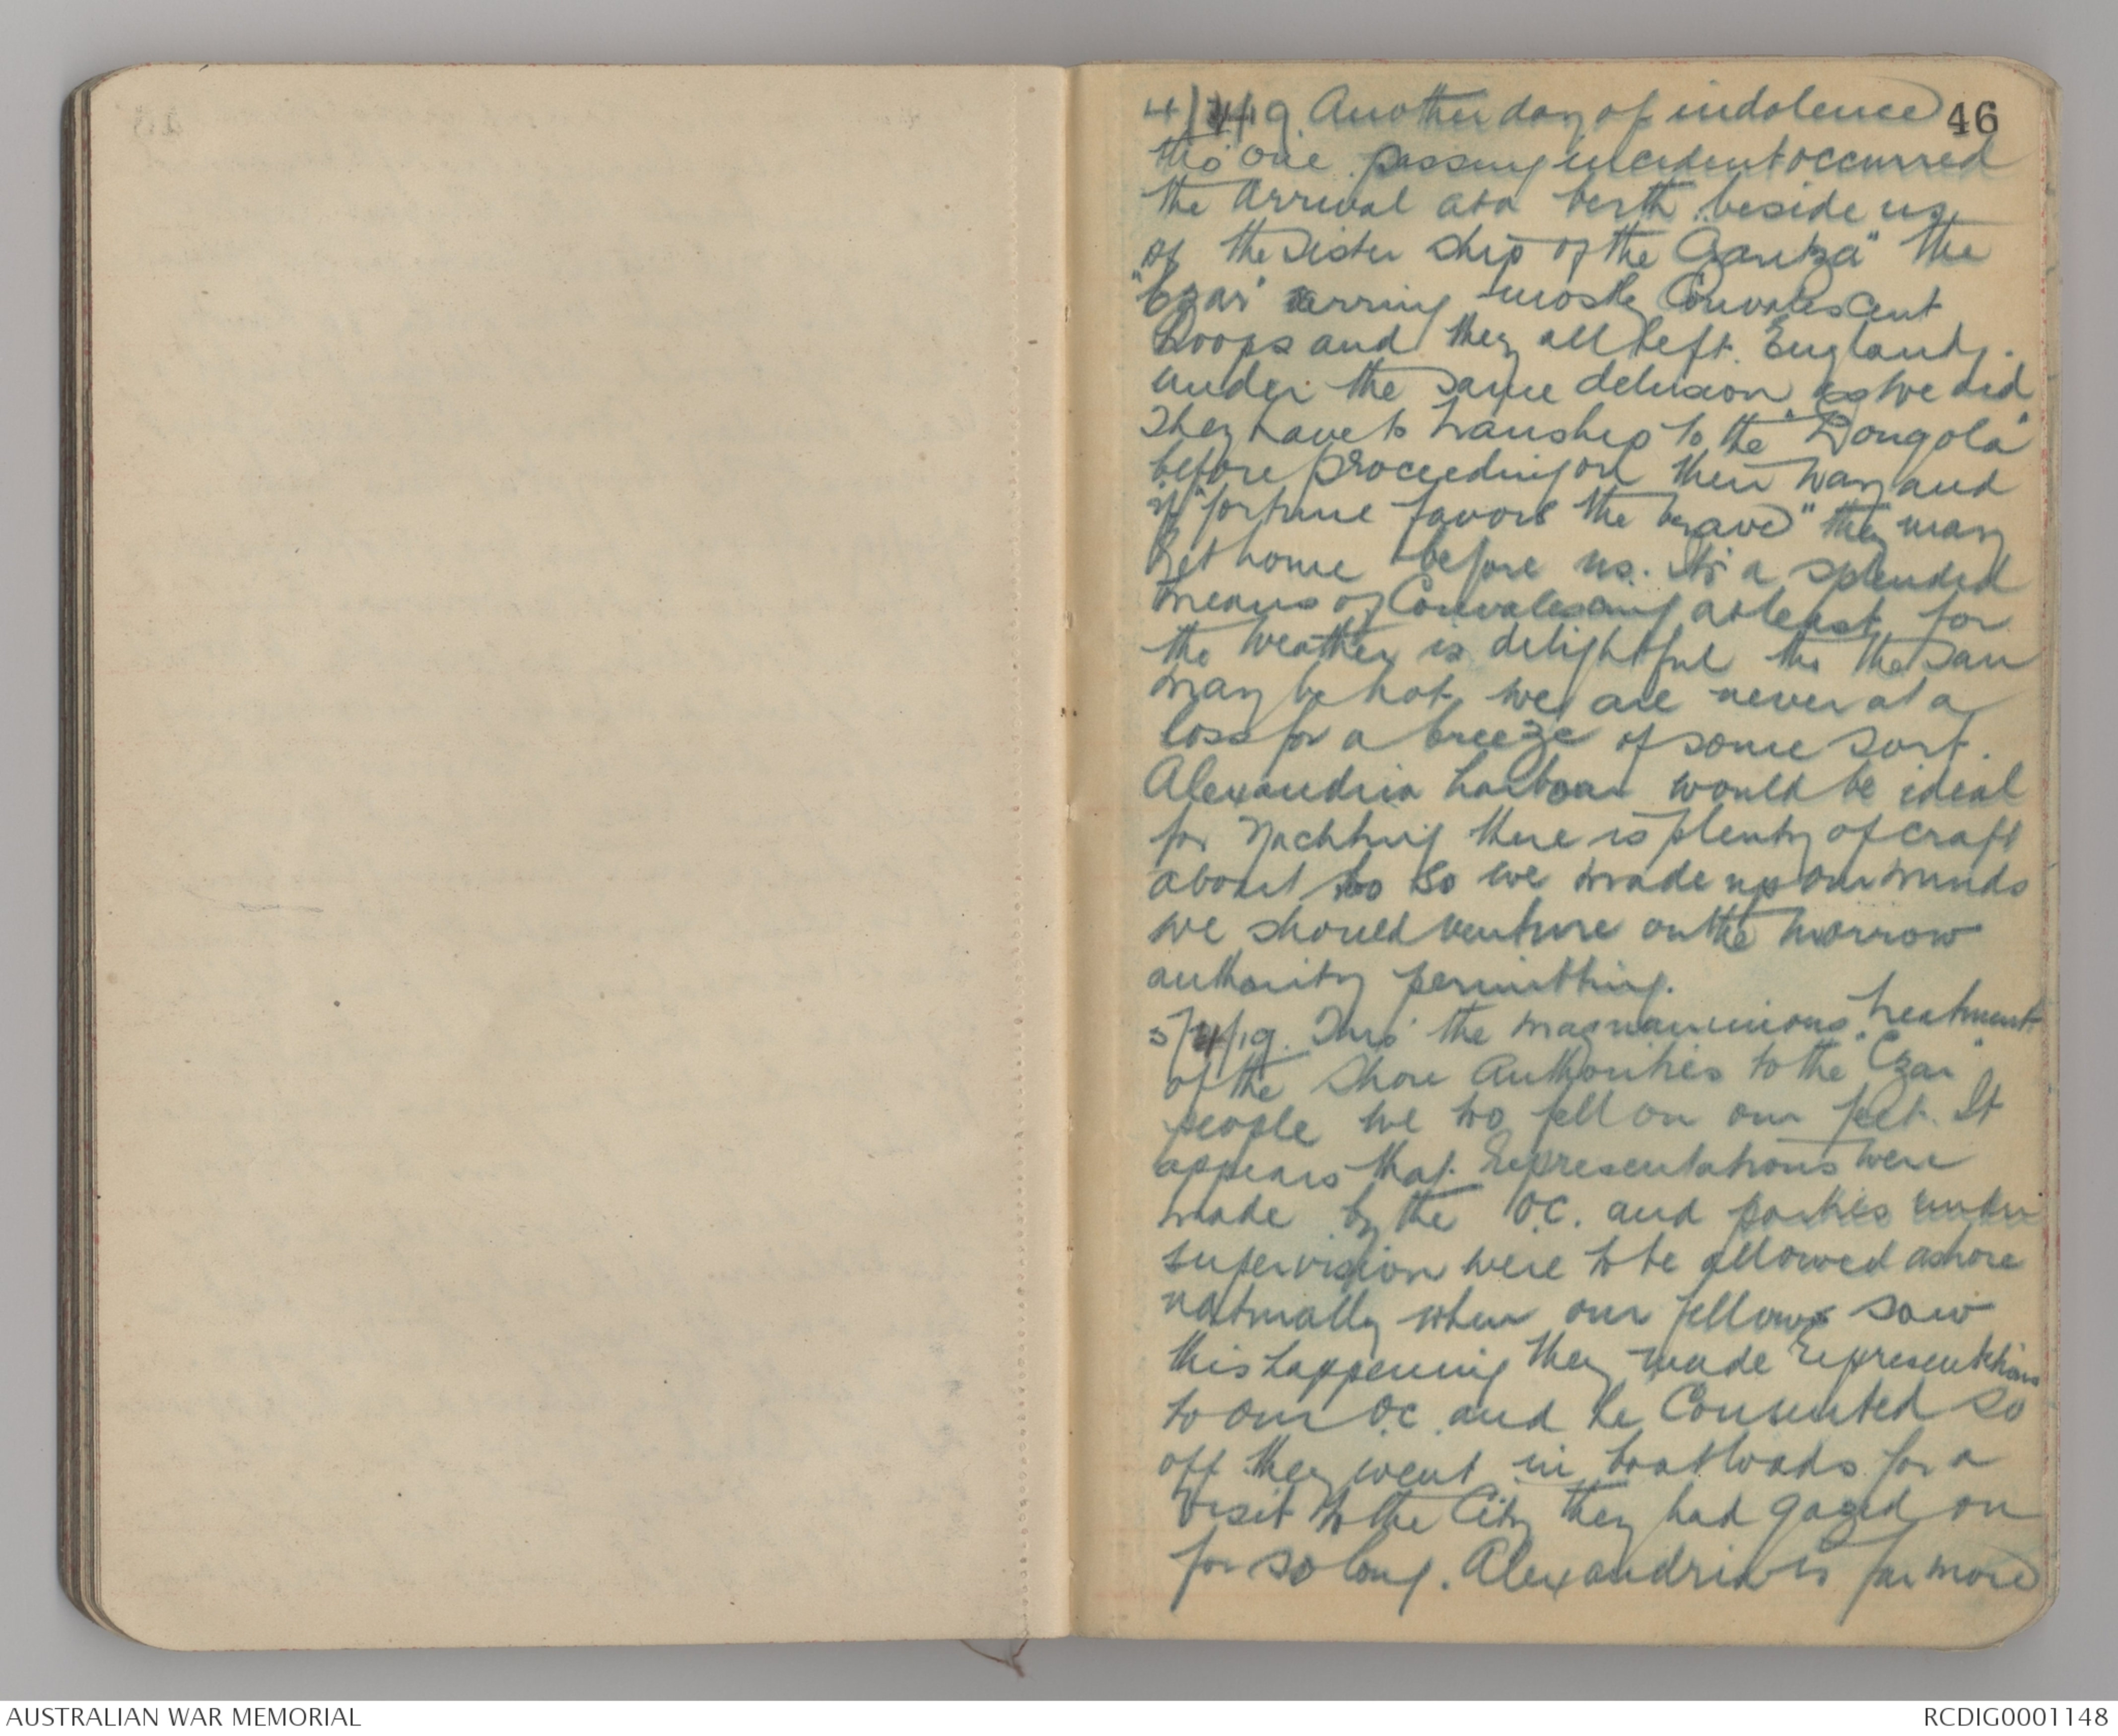 46
4/4/19. Another day of indolence
tho' one passing incident occurred
the arrival at a berth beside us
of the sister ship of the Czaritza" the
"Czar" carring mostly Convalescent
troops and they all left England
under the same delusion as we did
They have to tranship to the "Dongola"
before proceeding on their way and
if "fortune favors the brave" they may
get home before us. It's a splendid
means of Convalescing at least for
the weather is delightful tho the sun
may be hot we are never at a
loss for a breeze of some sort.
Alexandria harbour would be ideal
for Yachting there is plenty of craft
about too so we made up our minds
we should venture on the morrow
authority permitting.
5/4/19. Thro' the magnanimous treatment
of the Shore Authorities to the "Czar"
people we too fell on our feet. It
appears that representations were
made by the O.C. and parties under
supervision were to be allowed ashore
naturally when our fellows saw
this happening they made representations
to our O.C. and he Consented so
off they went in boatloads for a
visit to the City they had gazed on
for so long. Alexandria is far more
AUSTRALIAN WAR MEMORIAL
RCDIG0001148